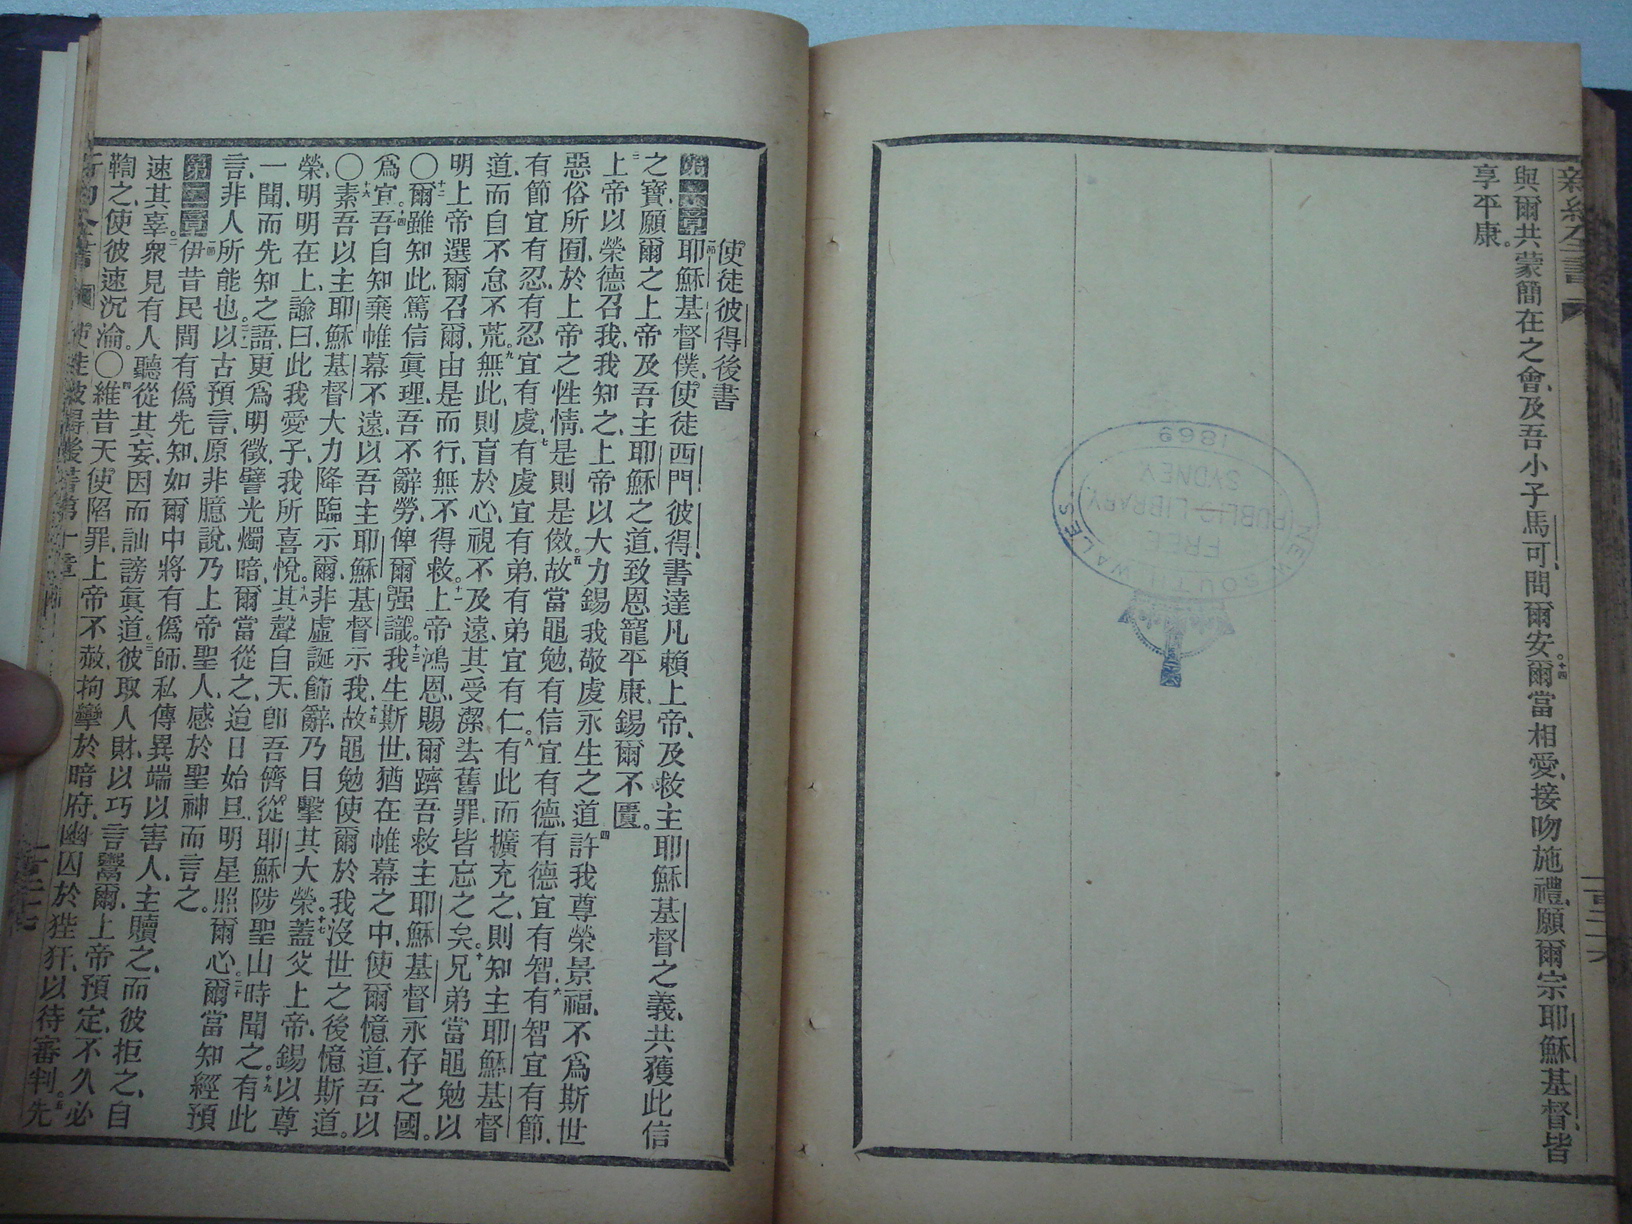 新約全書
與爾共蒙簡在之會、及吾小子馬可、問爾安。十四爾當相愛、接吻施禮、願爾宗耶穌基督、皆
享平康。
NEW SOUTH WALES
FREE
PUBLIC LIBRARY
SYDNEY
1869
使徒彼得後書
第一章一節耶穌基督僕、使徒西門彼得、書達凡賴上帝、及救主耶穌基督之義、共獲此信
之寶、二願爾之上帝及吾主耶穌之道、致恩寵平康、錫爾不匱。
三上帝以榮德召我、我知之、上帝以大力錫我敬虔永生之道、四許我尊榮景福、不爲斯世
惡俗所囿、於上帝之性情、是則是傚、五故當黽勉、有信宜有德、有德宜有智、六有智宜有節、
有節宜有忍、有忍宜有虔、七有虔宜有弟、有弟宜有仁。八有此而擴充之、則知主耶穌基督
道、而自不怠不荒。九無此、則盲於心、視不及遠、其受潔去舊罪、皆忘之矣。十兄弟當黽勉以
明上帝選爾召爾、由是而行、無不得救。十一上帝鴻恩、賜爾躋吾救主耶穌基督永存之國。
〇十二爾雖知此、篤信眞理、吾不辭勞、俾爾强識、十三我生斯世、猶在帷幕之中、使爾憶道、吾以
爲宜。十四吾自知棄帷幕不遠、以吾主耶穌基督示我、十五故黽勉使爾於我沒世之後憶斯道。
〇十六素吾以主耶穌基督大力降臨示爾、非虛誕飾辭、乃目擊其大榮。十七蓋父上帝、錫以尊
榮、明明在上、諭曰、此我愛子、我所喜悅。十八其聲自天、卽吾儕從耶穌陟聖山時聞之。十九有此
一聞、而先知之語、更爲明徵、譬光燭暗、爾當從之、迨日始旦、明星照爾心。二十爾當知經預
言、非人所能也。二一以古預言、原非臆說、乃上帝聖人、感於聖神而言之。
第二章一節伊昔民間有僞先知、如爾中將有僞師、私傳異端以害人、主贖之、而彼拒之、自
速其辜。二衆見有人聽從其妄、因而訕謗眞道。三彼取人財、以巧言鬻爾、上帝預定、不久必
鞫之、使彼速沉淪。〇四維昔天使陷罪、上帝不赦、拘攣於暗府、幽囚於狴犴、以待審判。五先
使徒彼得後書第一章